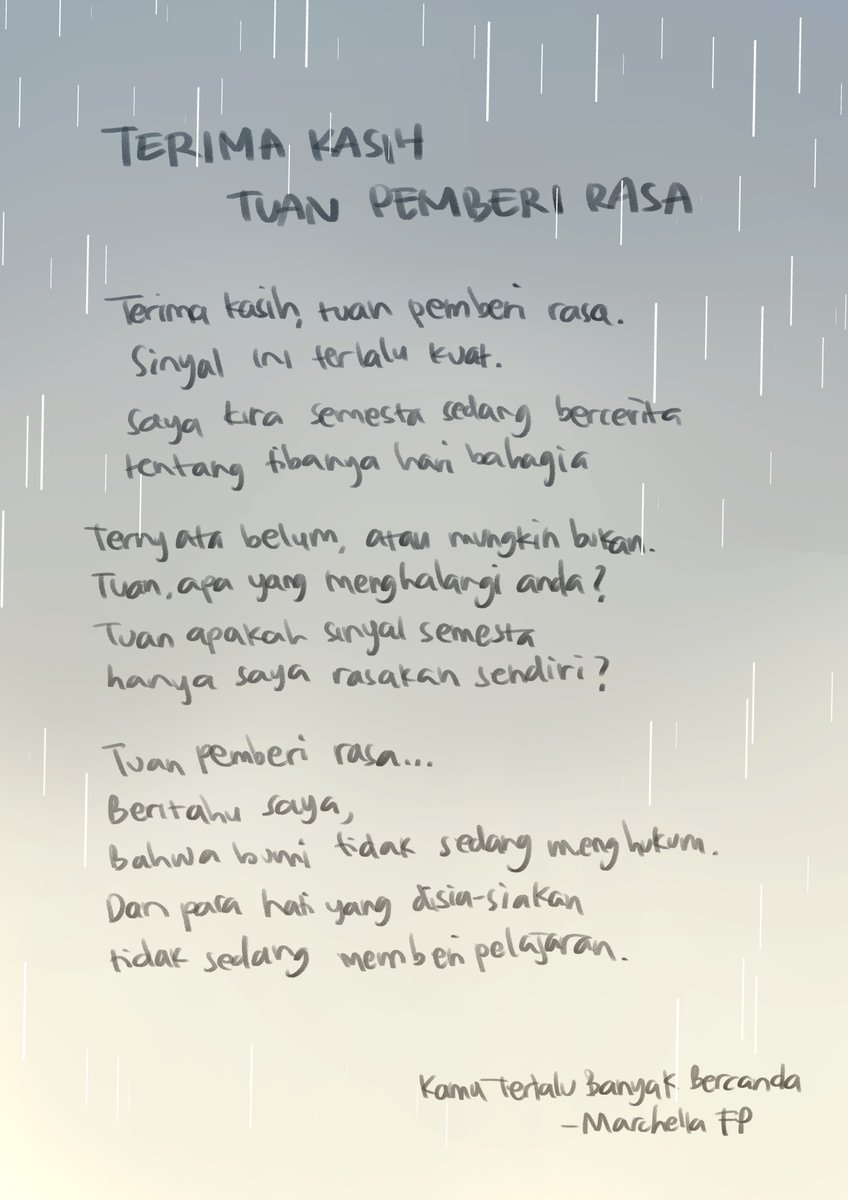 TERIMA KASIH
TUAN PEMBERI RASA
Terima kasih, tuan pemberi rasa.
Sinyal ini terlalu kuat.
Saya kira semesta sedang bercerita
tentang tibanya hari bahagia
Ternyata belum, atau mungkin bukan.
Tuan, apa yang menghalangi anda?
Tuan apakah sinyal semesta
hanya saya rasakan sendiri?
Tuan pemberi rasa...
Beritahu saya,
Bahwa bumi tidak sedang menghukum.
Dan para hati yang disia-siakan
tidak sedang memberi pelajaran.
Kamu Terlalu Banyak Bercanda
-Marchella FP